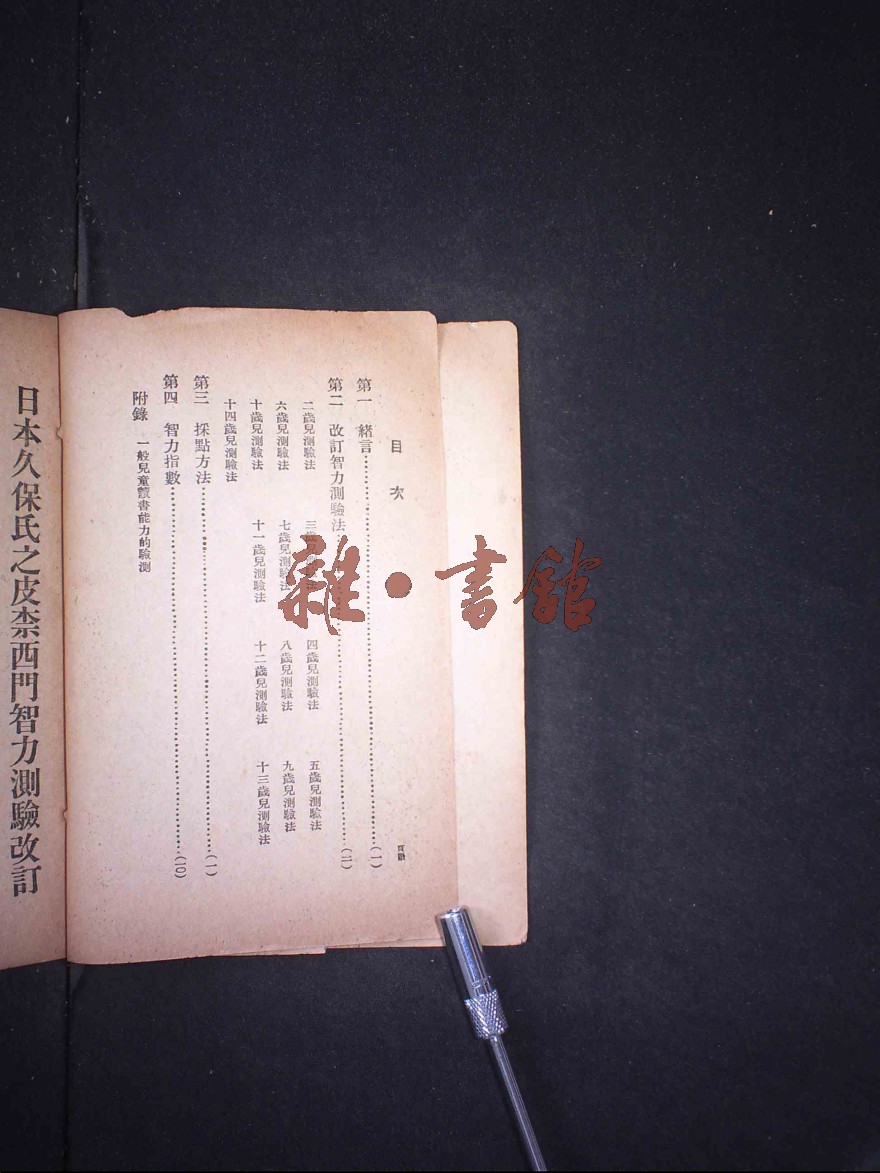 目次
頁數
第一 緒言……(一)
第二 改訂智力測驗法……(二)
二歲兒測驗法 三歲兒測驗法 四歲兒測驗法 五歲兒測驗法
六歲兒測驗法 七歲兒測驗法 八歲兒測驗法 九歲兒測驗法
十歲兒測驗法 十一歲兒測驗法 十二歲兒測驗法 十三歲兒測驗法
十四歲兒測驗法
第三 採點方法……(一)
第四 智力指數……(一〇)
附錄 一般兒童讀書能力的驗測
日本久保氏之皮柰西門智力測驗改訂
雜·書館